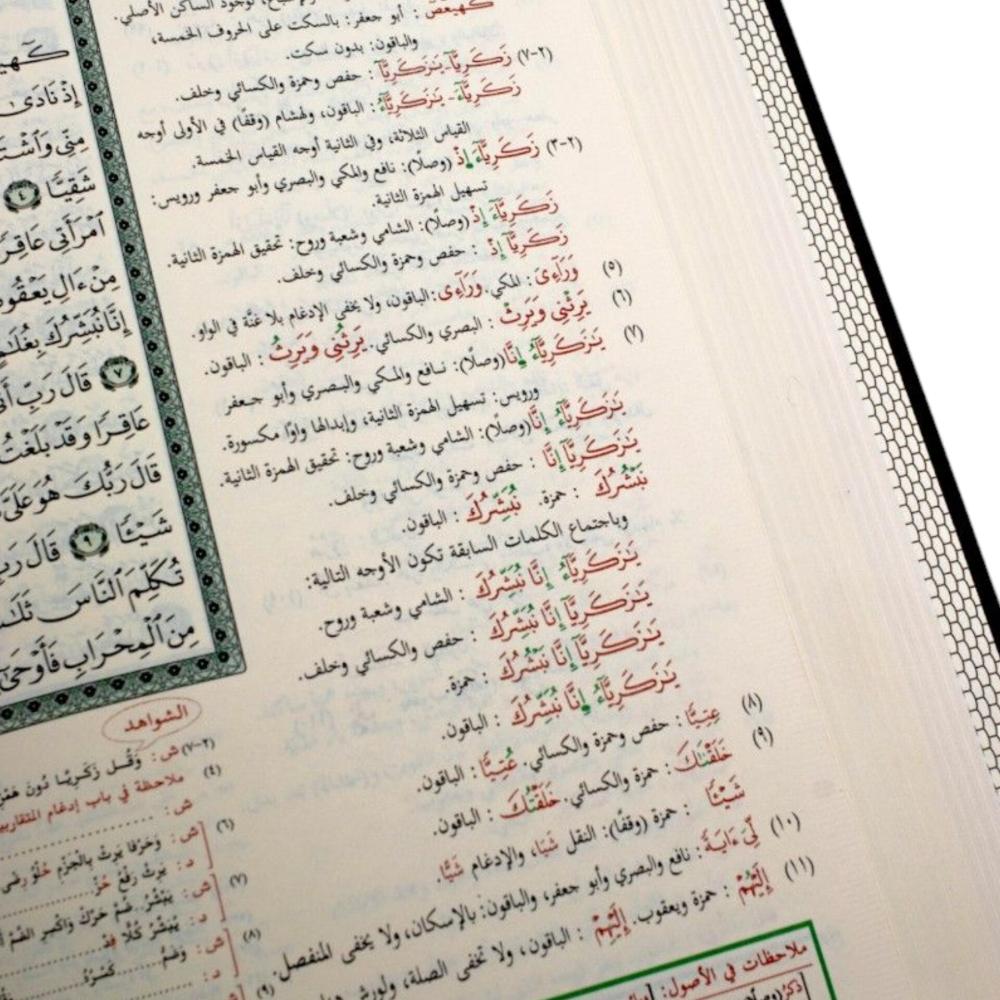 كهيعص : أبو جعفر: بالسكت على الحروف الخمسة،
والباقون: بدون سكت.
(٢-٧) زَكَرِيَّآ - يَـٰزَكَرِيَّآ : حفص وحمزة والكسائي وخلف.
زَكَرِيَّآءَ - يَـٰزَكَرِيَّآءُ : الباقون، ولهشام (وقفًا) في الأولى أوجه
القياس الثلاثة، وفي الثانية أوجه القياس الخمسة.
(٢-٣) زَكَرِيَّآءَ إِذْ (وصلًا): نافع والمكي والبصري وأبو جعفر ورويس:
تسهيل الهمزة الثانية.
زَكَرِيَّآءَ إِذْ (وصلًا): الشامي وشعبة وروح: تحقيق الهمزة الثانية.
زَكَرِيَّآ إِذْ : حفص وحمزة والكسائي وخلف.
(٥) وَرَآءِىَ : المكي. وَرَآءِى : الباقون، ولا يخفى الإدغام بلا غنَّة في الواو.
(٦) يَرِثْنِى وَيَرِثْ : البصري والكسائي. يَرِثُنِى وَيَرِثُ : الباقون.
(٧) يَـٰزَكَرِيَّآءُ إِنَّا (وصلًا): نافع والمكي والبصري وأبو جعفر
ورويس: تسهيل الهمزة الثانية، وإبدالها واوًا مكسورة.
يَـٰزَكَرِيَّآءُ إِنَّا (وصلًا): الشامي وشعبة وروح: تحقيق الهمزة الثانية.
يَـٰزَكَرِيَّآ إِنَّا : حفص وحمزة والكسائي وخلف.
نَبْشُرُكَ : حمزة. نُبَشِّرُكَ : الباقون.
وباجتماع الكلمات السابقة تكون الأوجه التالية:
يَـٰزَكَرِيَّآءُ إِنَّا نُبَشِّرُكَ : الشامي وشعبة وروح.
يَـٰزَكَرِيَّآ إِنَّا نُبَشِّرُكَ : حفص والكسائي وخلف.
يَـٰزَكَرِيَّآ إِنَّا نَبْشُرُكَ : حمزة.
يَـٰزَكَرِيَّآءُ إِنَّا نُبَشِّرُكَ : الباقون.
(٨) عِتِيًّا : حفص وحمزة والكسائي. عُتِيًّا : الباقون.
(٩) خَلَقْنَـٰكَ : حمزة والكسائي. خَلَقْتُكَ : الباقون.
شَيْـًٔا : حمزة (وقفًا): النقل شَيَا، والإدغام شَيًّا.
(١٠) لِّىَ ءَايَةً : نافع والبصري وأبو جعفر، والباقون: بالإسكان، ولا يخفى المنفصل.
(١١) إِلَيْهُمْ : حمزة ويعقوب. إِلَيْهِمْ : الباقون، ولا تخفى الصلة، ولورش
ملاحظات في الأصول:
إِذْ نَادَىٰ
مِنِّى وَٱشْتَ
شَقِيًّا ٤
ٱمْرَأَتِى عَاقِرً
مِنْ ءَالِ يَعْقُو
إِنَّا نُبَشِّرُكَ بِغُلَـٰمٍ
٧ قَالَ رَبِّ أَنَّ
عَاقِرًا وَقَدْ بَلَغْتُ
قَالَ رَبُّكَ هُوَ عَلَىَّ
شَيْـًٔا ٩ قَالَ رَبِّ
تُكَلِّمَ ٱلنَّاسَ ثَلَـٰ
مِنَ ٱلْمِحْرَابِ فَأَوْحَىٰ
الشواهد
(٢-٧) ش: وَقُل زَكَرِيَّا دُونَ هَمْزِ
(٤) ملاحظة في باب إدغام المتقاربين
ش:
(٦) ش: وَحَرْفَا يَرِثْ بِالْجَزْمِ حُلْوُ رِضًى
د: يَرِثُ رَفْعُ حُزْ
(٧) ش:
د:
(٨) ش: وَضَمُّ كَسْرُهُ
د:
(٩) ش: